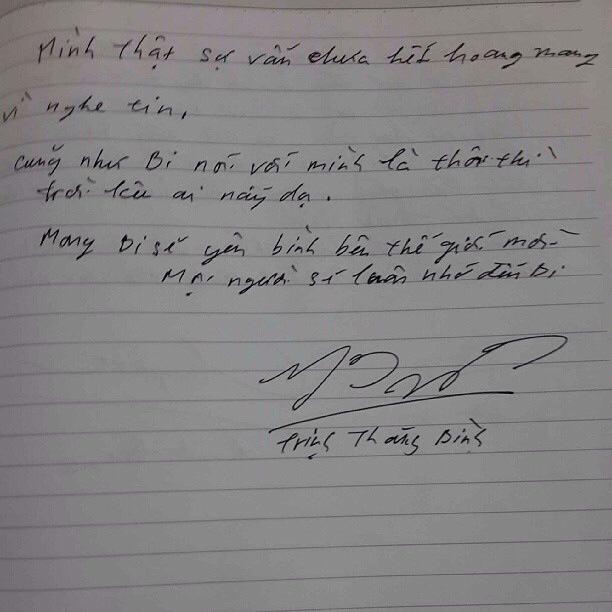 Mình thật sự vẫn chưa hết hoang mang
vì nghe tin,
cũng như Bi nói với mình là thôi thì
trời kêu ai nấy dạ.
Mong Bi sẽ yên bình bên thế giới mới
Mọi người sẽ luôn nhớ đến Bi
Trịnh Thăng Bình